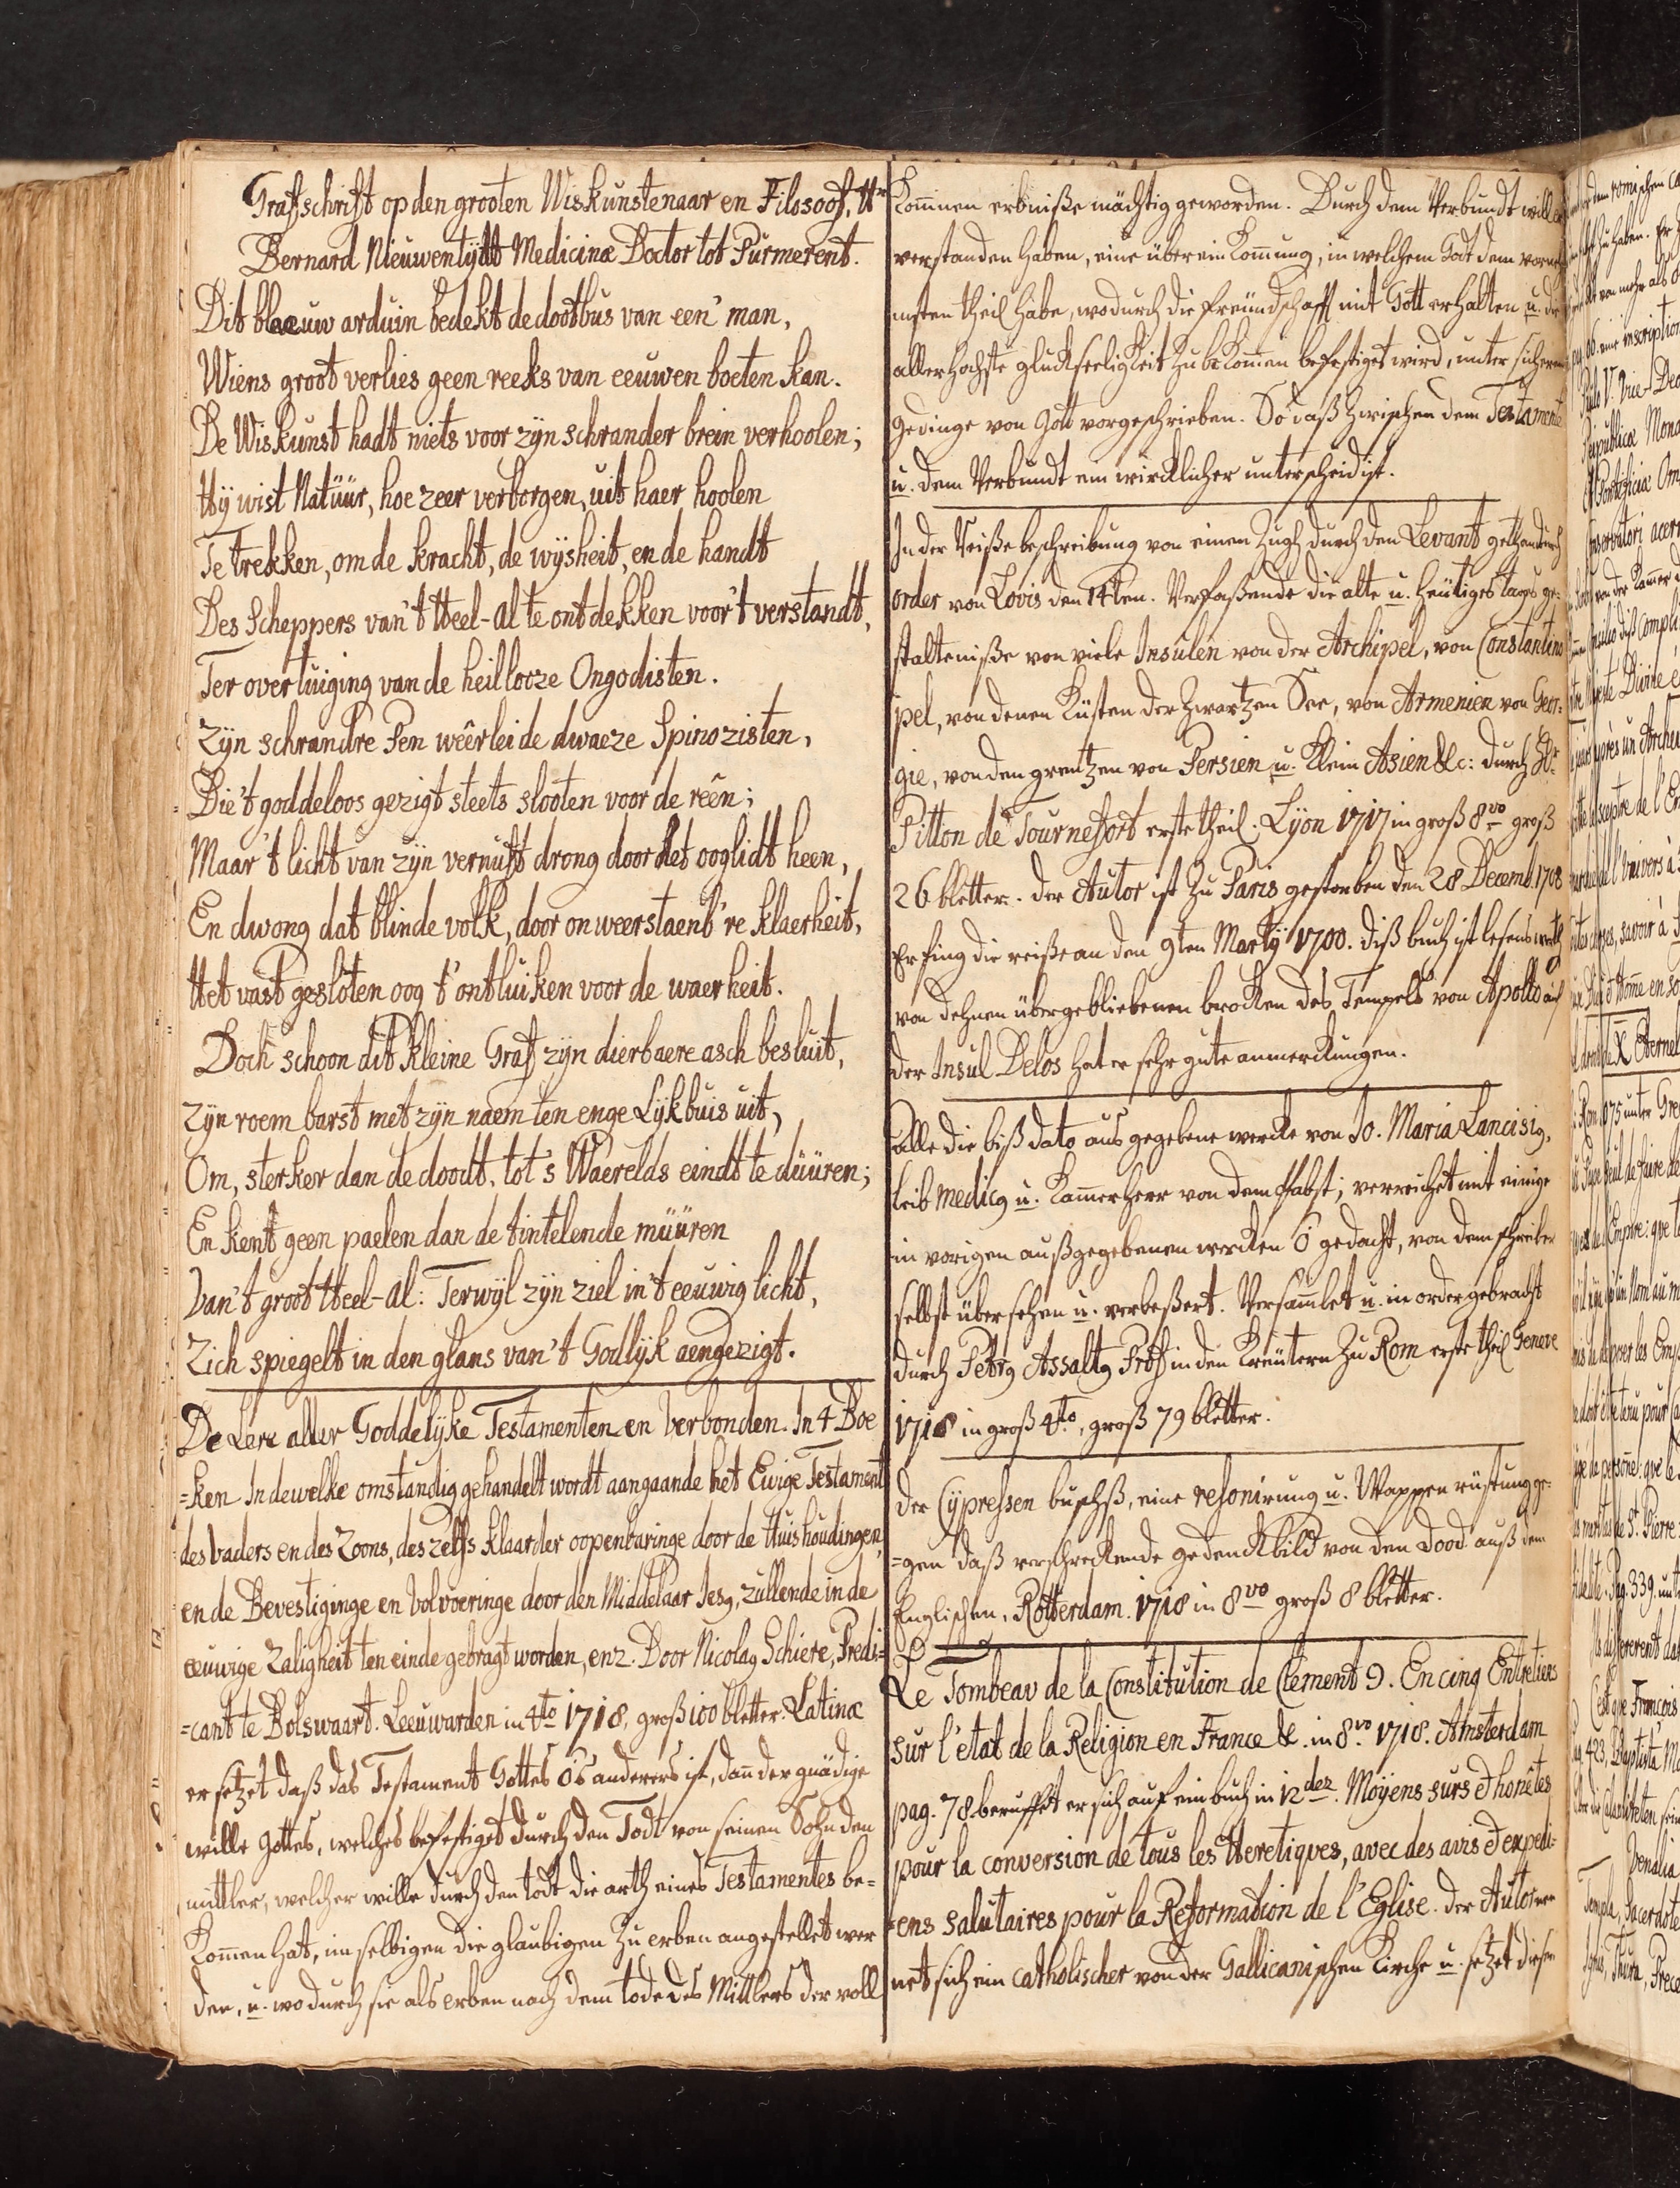 Grafschrift op den grooten Wiskunstenaar en Filosoof, Hr
Bernard Nieuwentÿdt Medicinæ Doctor tot Purmerent.
Dit blaeuw arduin bedekt de dootbus van een' man,
Wiens groot verlies geen reeks van eeuwen boeten kan.
De Wiskunst hadt niets voor zÿn schrander brein verhoolen;
Hÿ wist Natüür, hoe zeer verborgen, uit haer hoolen
Te trekken, om de kracht, de wÿsheit, en de handt
Des Scheppers van 't Heel-al te ontdekken voor 't verstandt,
Ter overtuiging van de heillooze Ongodisten.
Zÿn schrandre Pen weêrleide dwaeze Spinozisten,
Die 't goddeloos gezigt steets slooten voor de reên;
Maar 't licht van zÿn vernuft drong door het ooglidt heen,
En dwong dat blinde volk, door onweerstaenb're klaerheit,
Het vast gesloten oog t' ontluiken voor de waerheit.
Doch schoon dit kleine Graf zÿn dierbaere asch besluit,
Zÿn roem barst met zÿn naem ten enge Lÿkbuis uit,
Om, sterker dan de doodt, tot 's Waerelds eindt te düüren;
En kent geen paelen dan de tintelende müüren
Van 't groot Heel-al: Terwÿl zÿn ziel in 't eeuwig licht,
Zich spiegelt in den glans van 't Godlÿk aengezigt.
De Lere aller Goddelÿke Testamenten en Verbonden. In 4 Boe
=ken In dewelke omstandig gehandelt wordt aangaande het Ewige Testament
des Vaders en des Zoons, des zelfs klaarder oopenbaringe door de Huishoudingen,
en de Bevestiginge en Volvoeringe door den Middelaar Jesq, zullende in de
eeuwige Zaligheit ten einde gebragt worden, enz. Door Nicolaq Schiere, Predi=
=cant te Bolswaart. Leeuwarden in 4to 1718, groß 100 bletter. Latinæ
er setzet daß das Testament Gottes anderers ist, dan der gnädige
wille Gottes, welches befestiget durch den Todt von seinen Sohn den
mittler, welcher wille durch den todt die arth eines Testamentes be=
kommen hat, im selbigen die glaubigen zu erben angestellet wer
den, u. wodurch sie als erben nach dem tode des Mittlers der voll
kommnen erbniße mächtig geworden. Durch dem Verbundt will er
verstanden haben, eine übereinkomung, in welchem Gott dem vorne
msten theil habe, wodurch die freündschafft mit Gott erhalten u. die
allerhochste gluckseeligkeit zu bekommen befestiget wird, unter sicheren
gedinge von Gott vorgeschrieben. So daß zwischen dem Testamente
u. dem Verbundt ein wircklicher unterscheid ist.
In der Reiße beschreibung von einen Zugh durch den Levant gethan durch
order von Lovis den 14ten. Verfaßende die alte u. heütiges tags ge=
stalteniße von viele Insulen von der Archipel, von Constantino
pel, von denen Küsten der Zwartzen See, von Armenien von Geor=
gie, von den grentzen von Persien u. Klein Asien &c: durch Hr
Pitton de Tournefort erste theil. Lÿon 1717 in groß 8vo groß
26 bletter. der Autor ist zu Paris gestorben den 28 Decemb. 1708
Er fing die reiße an den 9ten Martÿ 1700. diß buch ist lesens werth
von dehnen übergebliebenen brocken des Tempels von Apollo auf
der Insul Delos hat er sehr gute anmerckungen.
Alle die biß dato aus gegebene wercke von Jo. Maria Lancisiq,
leib medicq u. Kammerherr von dem Pabst; verreichet mit einige
in vorigen außgegebenen wercken gedacht, von dem schreiber
selbst übersehen u. verbeßert. Versamlet u. in order gebracht
durch Petrq Assaltq Prof in den Kreütern zu Rom erste theil Geneve
1718 in groß 4to, groß 79 bletter.
Der Cÿpressen busch, eine resonirung u. Wappen rüstung ge=
=gen daß verschreckende gedenckbild von den Dood auß dem
Englischen, Rotterdam. 1718 in 8vo groß 8 bletter.
Le Tombeav de la Constitution de Clement 9. En cinq Entretiens
sur l'état de la Religion en France &. in 8vo 1718. Amsterdam
pag. 78 beruffet er sich auf ein buch in 12dez. Moÿens surs & honêtes
pour la conversion de tous les Heretiqves, avec des avis & expedi=
=ens salutaires pour la Reformation de l'Eglise. der Autor nen
net sich ein catholischer von der Gallicanischen Kirche u. setzet diesen